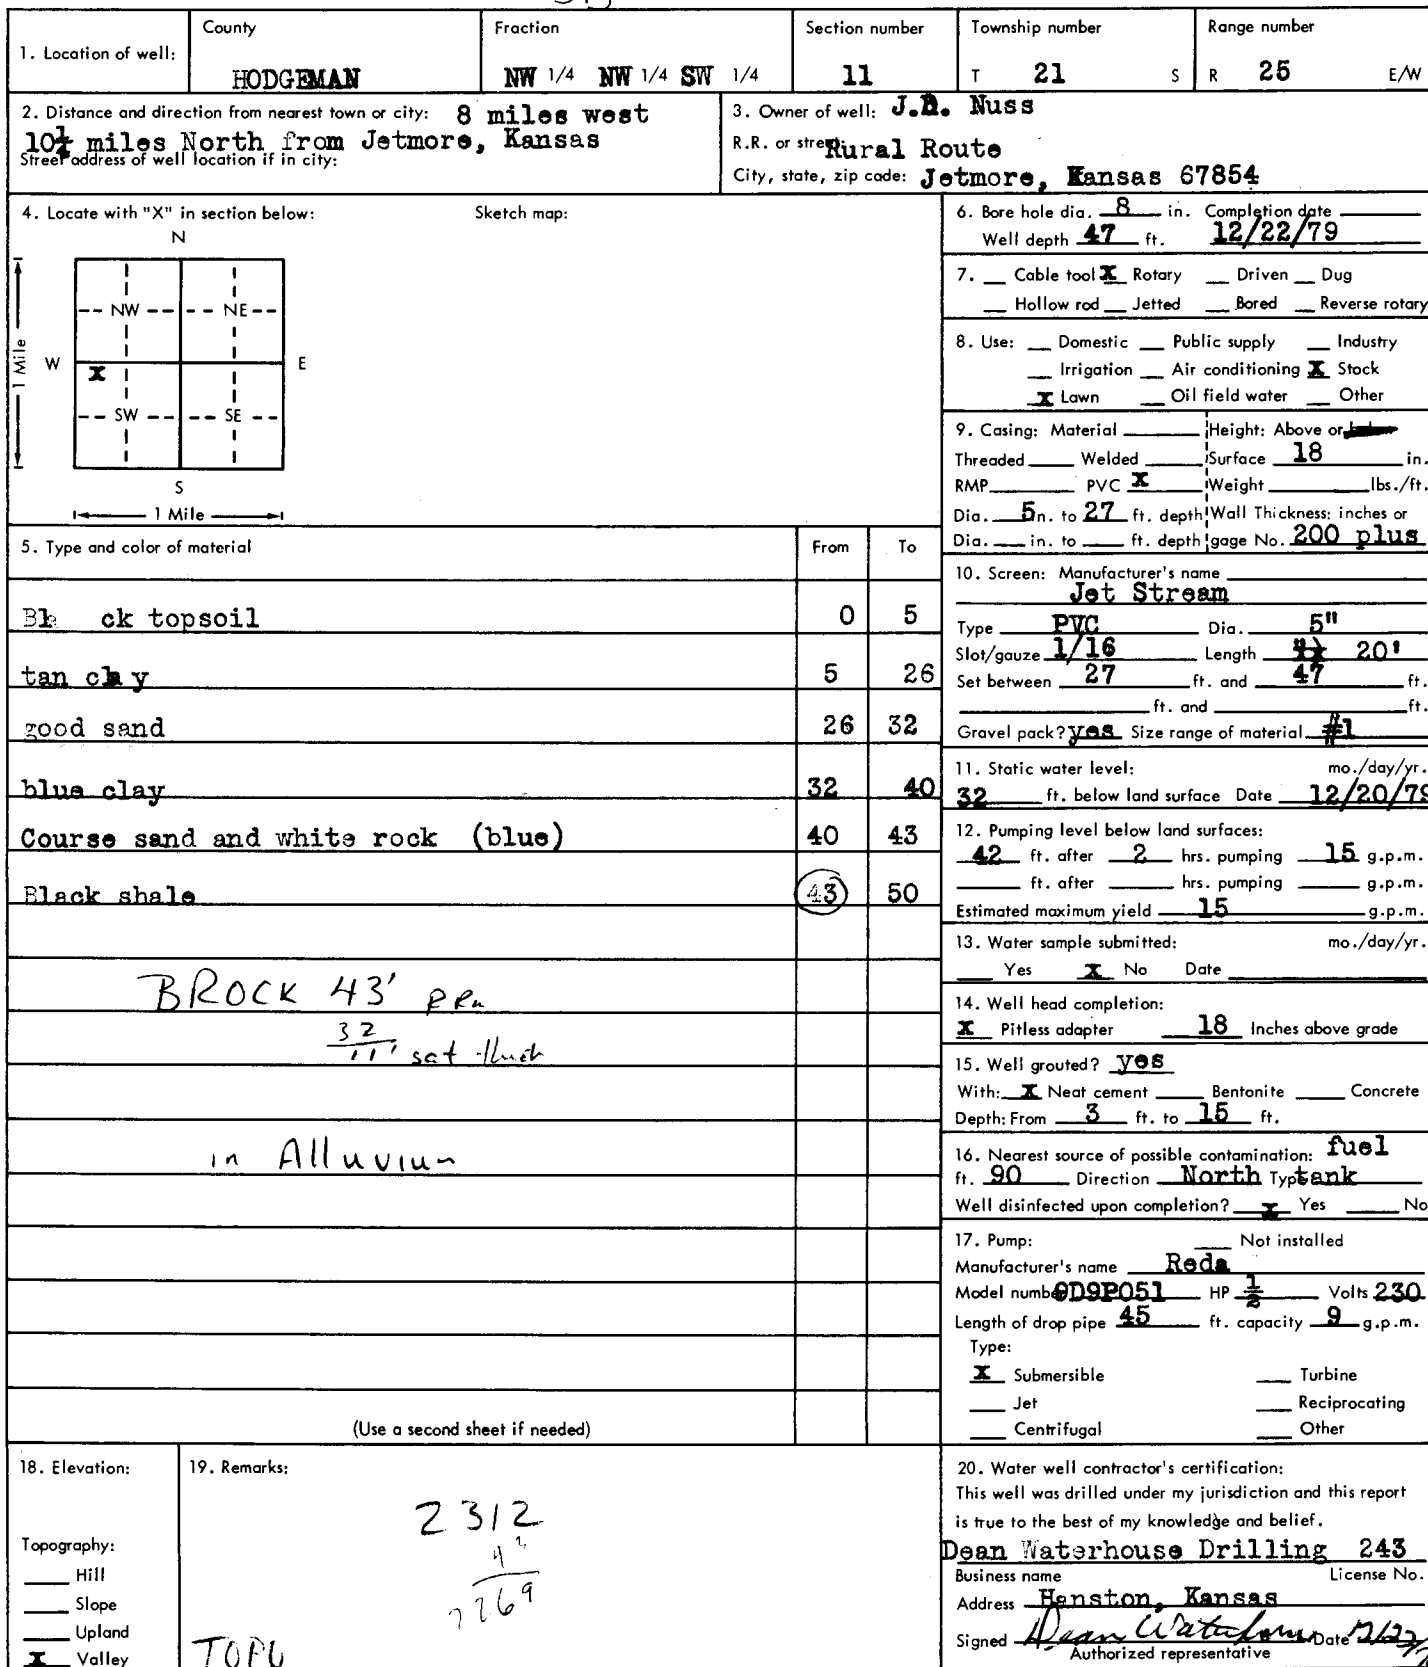 County Fraction Section number Township number Range number
1. Location of well: HODGEMAN NW 1/4 NW 1/4 SW 1/4 11 T 21 S R 25 E/W
2. Distance and direction from nearest town or city: 8 miles west
10¼ miles North from Jetmore, Kansas
Street address of well location if in city:
3. Owner of well: J.R. Nuss
R.R. or street: Rural Route
City, state, zip code: Jetmore, Kansas 67854
4. Locate with "X" in section below: Sketch map:
N
NW NE
1 Mile W X E
SW SE
S
1 Mile
5. Type and color of material From To
Bla ck topsoil 0 5
tan clay 5 26
good sand 26 32
blue clay 32 40
Course sand and white rock (blue) 40 43
Black shale 43 50
BROCK 43'
32
11' sat thick
in Alluvium
(Use a second sheet if needed)
6. Bore hole dia. 8 in. Completion date
Well depth 47 ft. 12/22/79
7. Cable tool X Rotary Driven Dug
Hollow rod Jetted Bored Reverse rotary
8. Use: Domestic Public supply Industry
Irrigation Air conditioning X Stock
X Lawn Oil field water Other
9. Casing: Material Height: Above or
Threaded Welded Surface 18 in.
RMP PVC X Weight lbs./ft.
Dia. 5 in. to 27 ft. depth Wall Thickness: inches or
Dia. in. to ft. depth gage No. 200 plus
10. Screen: Manufacturer's name
Jet Stream
Type PVC Dia. 5"
Slot/gauze 1/16 Length 20'
Set between 27 ft. and 47 ft.
ft. and ft.
Gravel pack? yes Size range of material #1
11. Static water level: mo./day/yr.
32 ft. below land surface Date 12/20/79
12. Pumping level below land surfaces:
42 ft. after 2 hrs. pumping 15 g.p.m.
ft. after hrs. pumping g.p.m.
Estimated maximum yield 15 g.p.m.
13. Water sample submitted: mo./day/yr.
Yes X No Date
14. Well head completion:
X Pitless adapter 18 Inches above grade
15. Well grouted? yes
With: X Neat cement Bentonite Concrete
Depth: From 3 ft. to 15 ft.
16. Nearest source of possible contamination: fuel
ft. 90 Direction North Type tank
Well disinfected upon completion? X Yes No
17. Pump: Not installed
Manufacturer's name Reda
Model number 9D9P051 HP 1/2 Volts 230
Length of drop pipe 45 ft. capacity 9 g.p.m.
Type:
X Submersible Turbine
Jet Reciprocating
Centrifugal Other
18. Elevation:
Topography:
Hill
Slope
Upland
X Valley
19. Remarks:
2312
43
2269
TOPO
20. Water well contractor's certification:
This well was drilled under my jurisdiction and this report
is true to the best of my knowledge and belief.
Dean Waterhouse Drilling 243
Business name License No.
Address Hanston, Kansas
Signed Dean Waterhouse Date 12/22/
Authorized representative